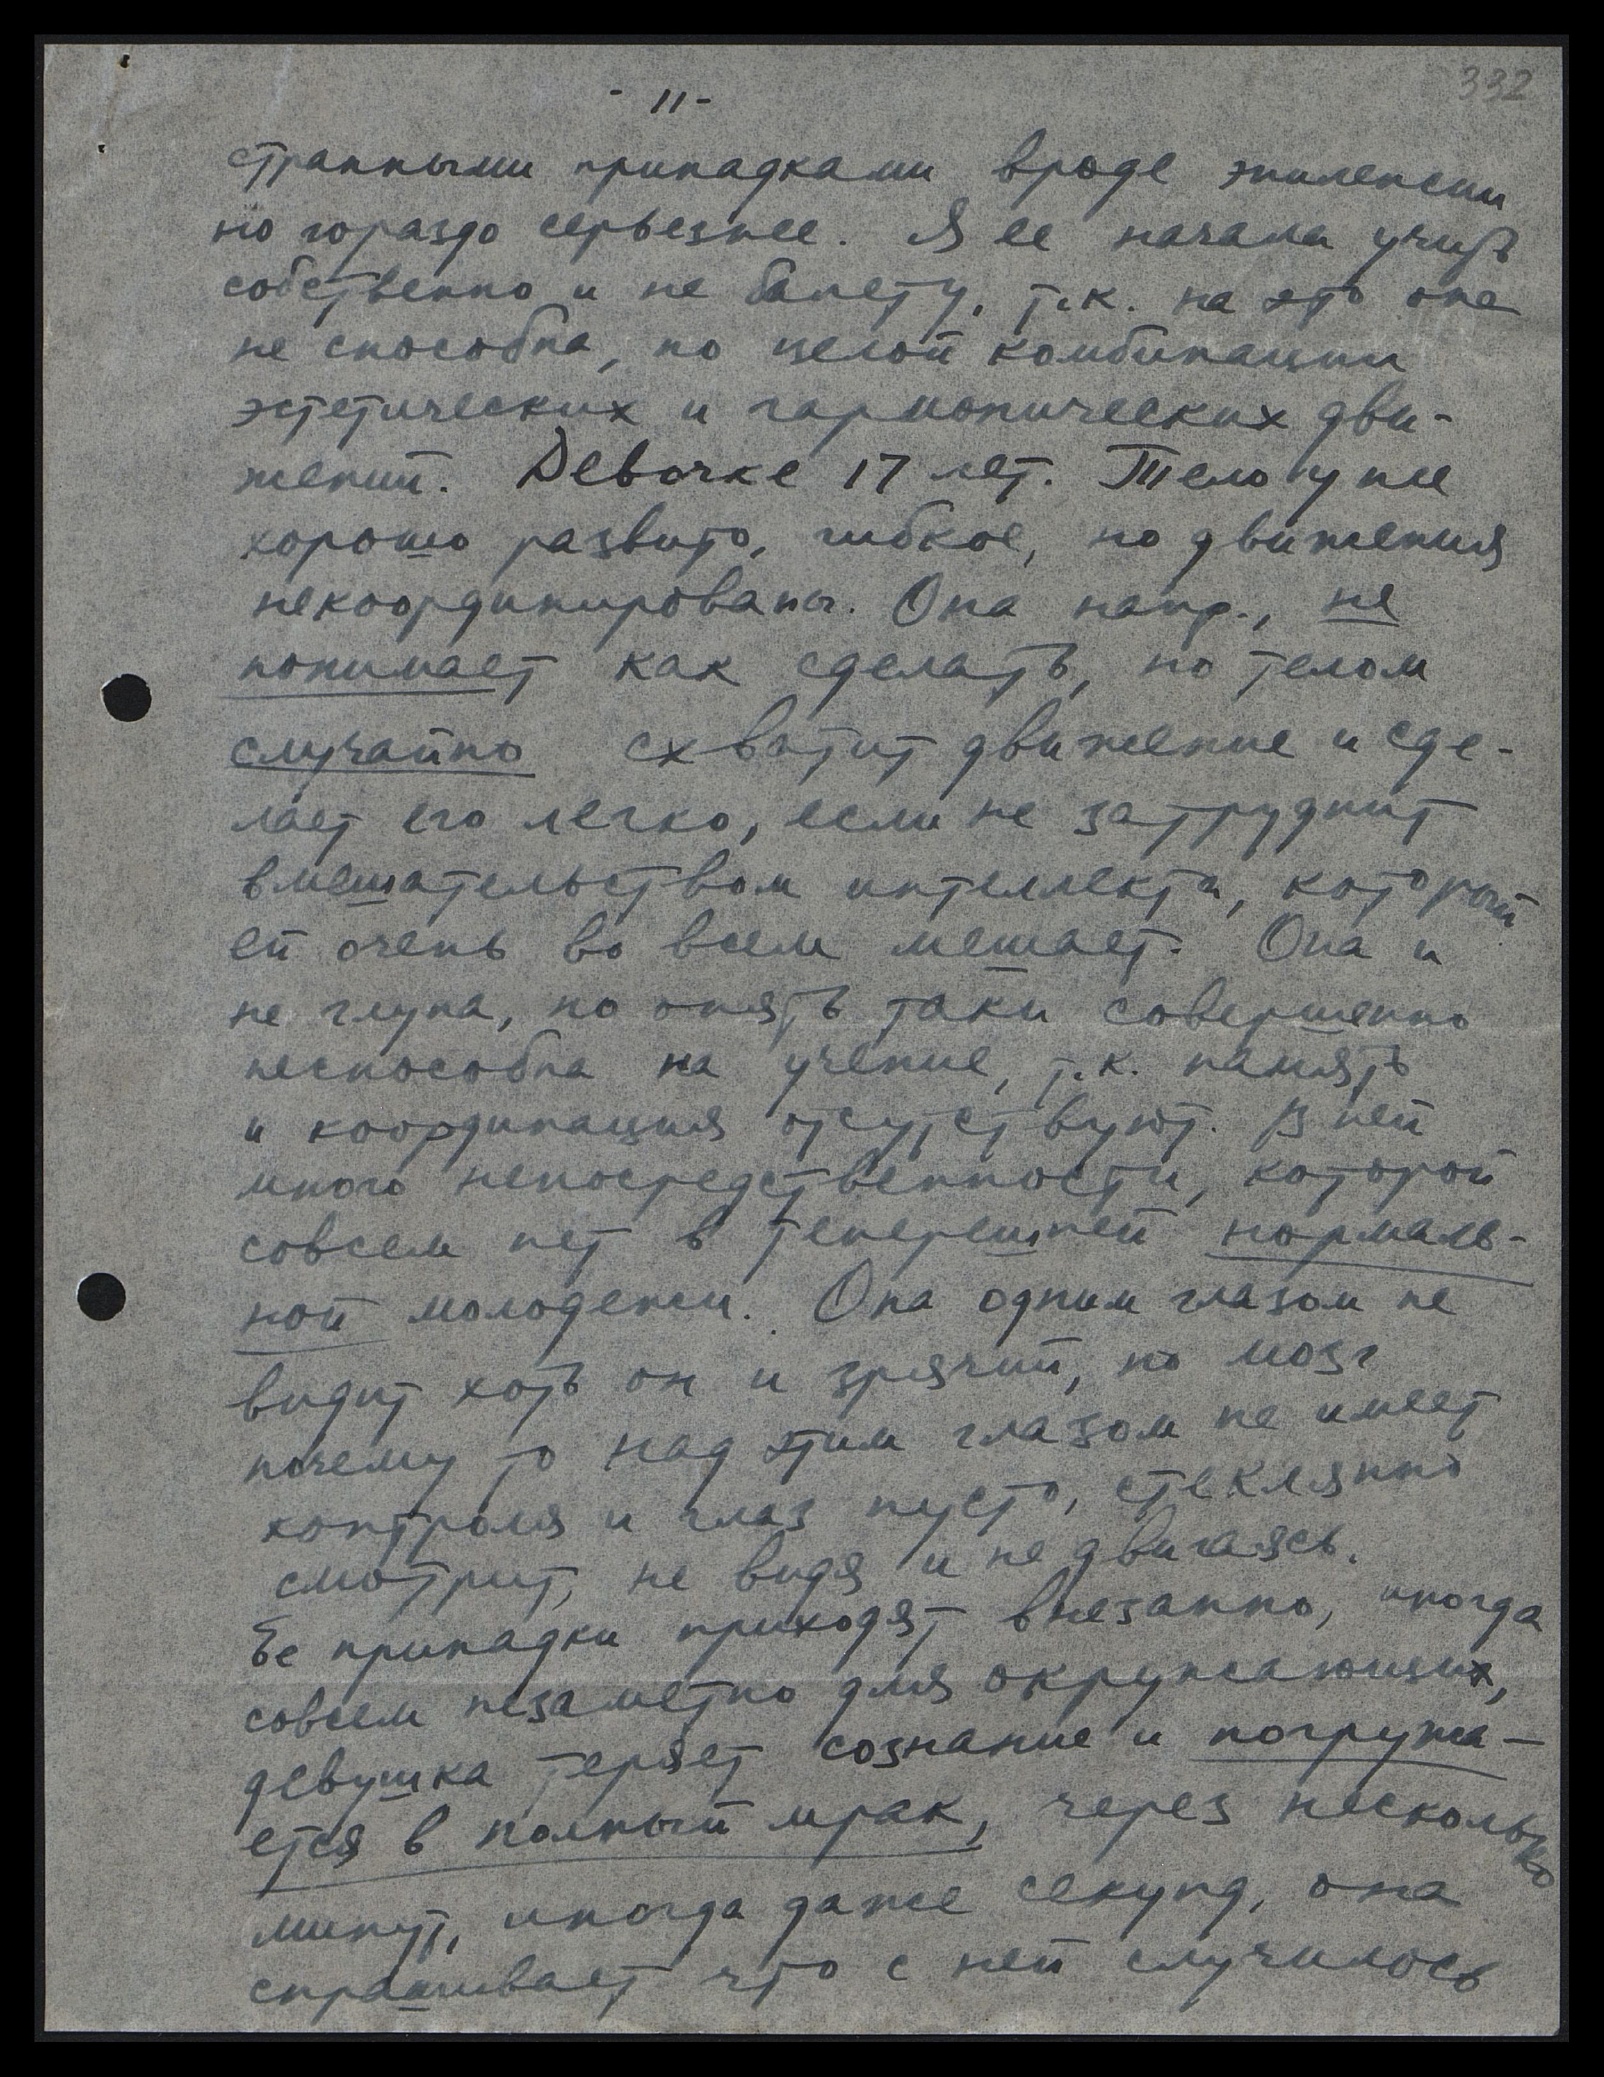 332
- 11 -
странными припадками вроде эпилепсии
но гораздо серьезнее. Я ее начала учить
собственно и не балету, т.к. на это она
не способна, но целой комбинации
эстетических и гармонических дви-
жений. Девочке 17 лет. Тело у нее
хорошо развито, гибкое, но движения
некоординированы. Она напр., не
понимает как сделать, но телом
случайно схватит движение и сде-
лает его легко, если не затруднит
вмешательством интеллекта, который
ей очень во всем мешает. Она и
не глупа, но опять таки совершенно
неспособна на учение, т.к. память
и координация отсутствуют. В ней
много непосредственности, которой
совсем нет в теперешней нормаль-
ной молодежи. Она одним глазом не
видит хоть он и зрячий, но мозг
почему то над этим глазом не имеет
контроля и глаз пусто, стеклянно
смотрит, не видя и не двигаясь.
Ее припадки приходят внезапно, иногда
совсем незаметно для окружающих,
девушка теряет сознание и погружа-
ется в полный мрак, через несколько
минут, иногда даже секунд, она
спрашивает что с ней случилось